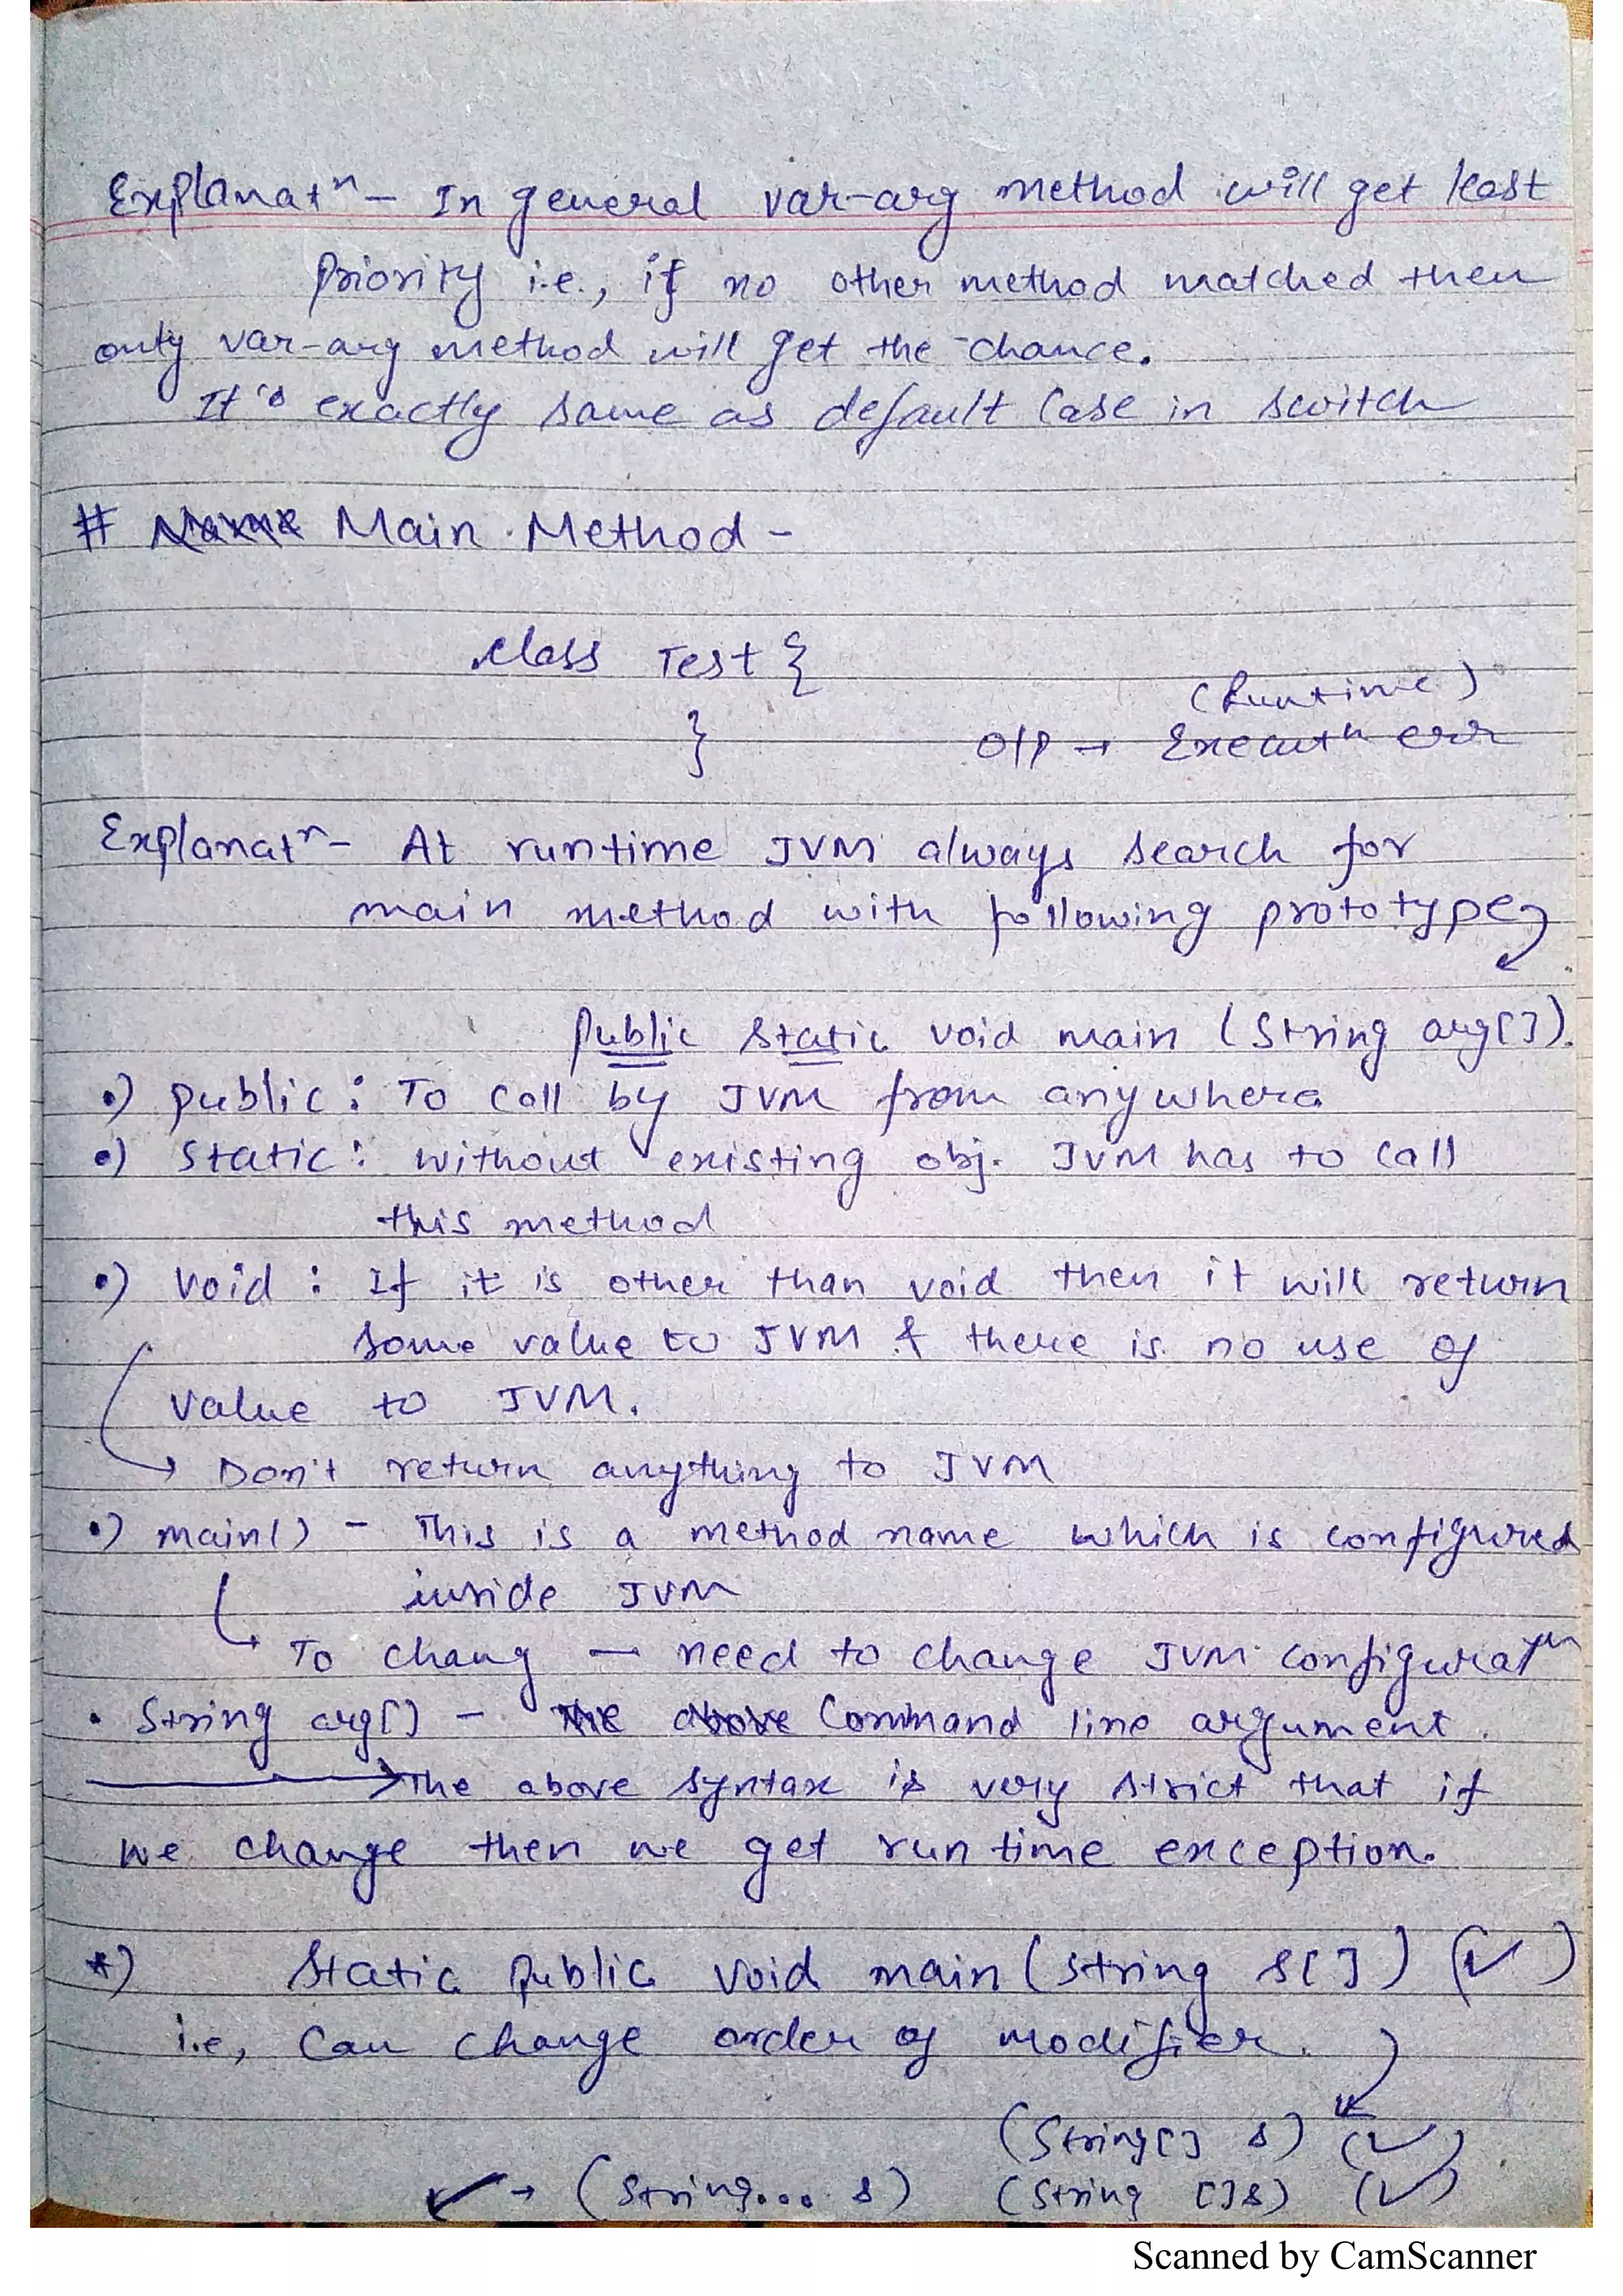 Explanatⁿ - In general var-arg method will get least
priority i.e., if no other method matched then
only var-arg method will get the chance.
It's exactly same as default case in switch
# Main Method -
class Test {
(Runtime)
} O/P → Executⁿ err
Explanatⁿ - At runtime JVM always search for
main method with following prototype
public static void main (String arg[]).
•) public : To call by JVM from anywhere
•) Static : without existing obj. JVM has to call
this method
•) Void : If it is other than void then it will return
some value to JVM & there is no use of
value to JVM.
→ Don't return anything to JVM
•) main() - This is a method name which is configured
inside JVM
→ To chang — need to change JVM configuratⁿ
• String arg[] - Command line argument.
→ The above syntax is very strict that if
we change then we get run time exception.
*) Static public void main (String s[]) (✓)
i.e, Can change order of modifier.
(String[] s) (✓)
✓ → (String... s) (String []s) (✓)
Scanned by CamScanner